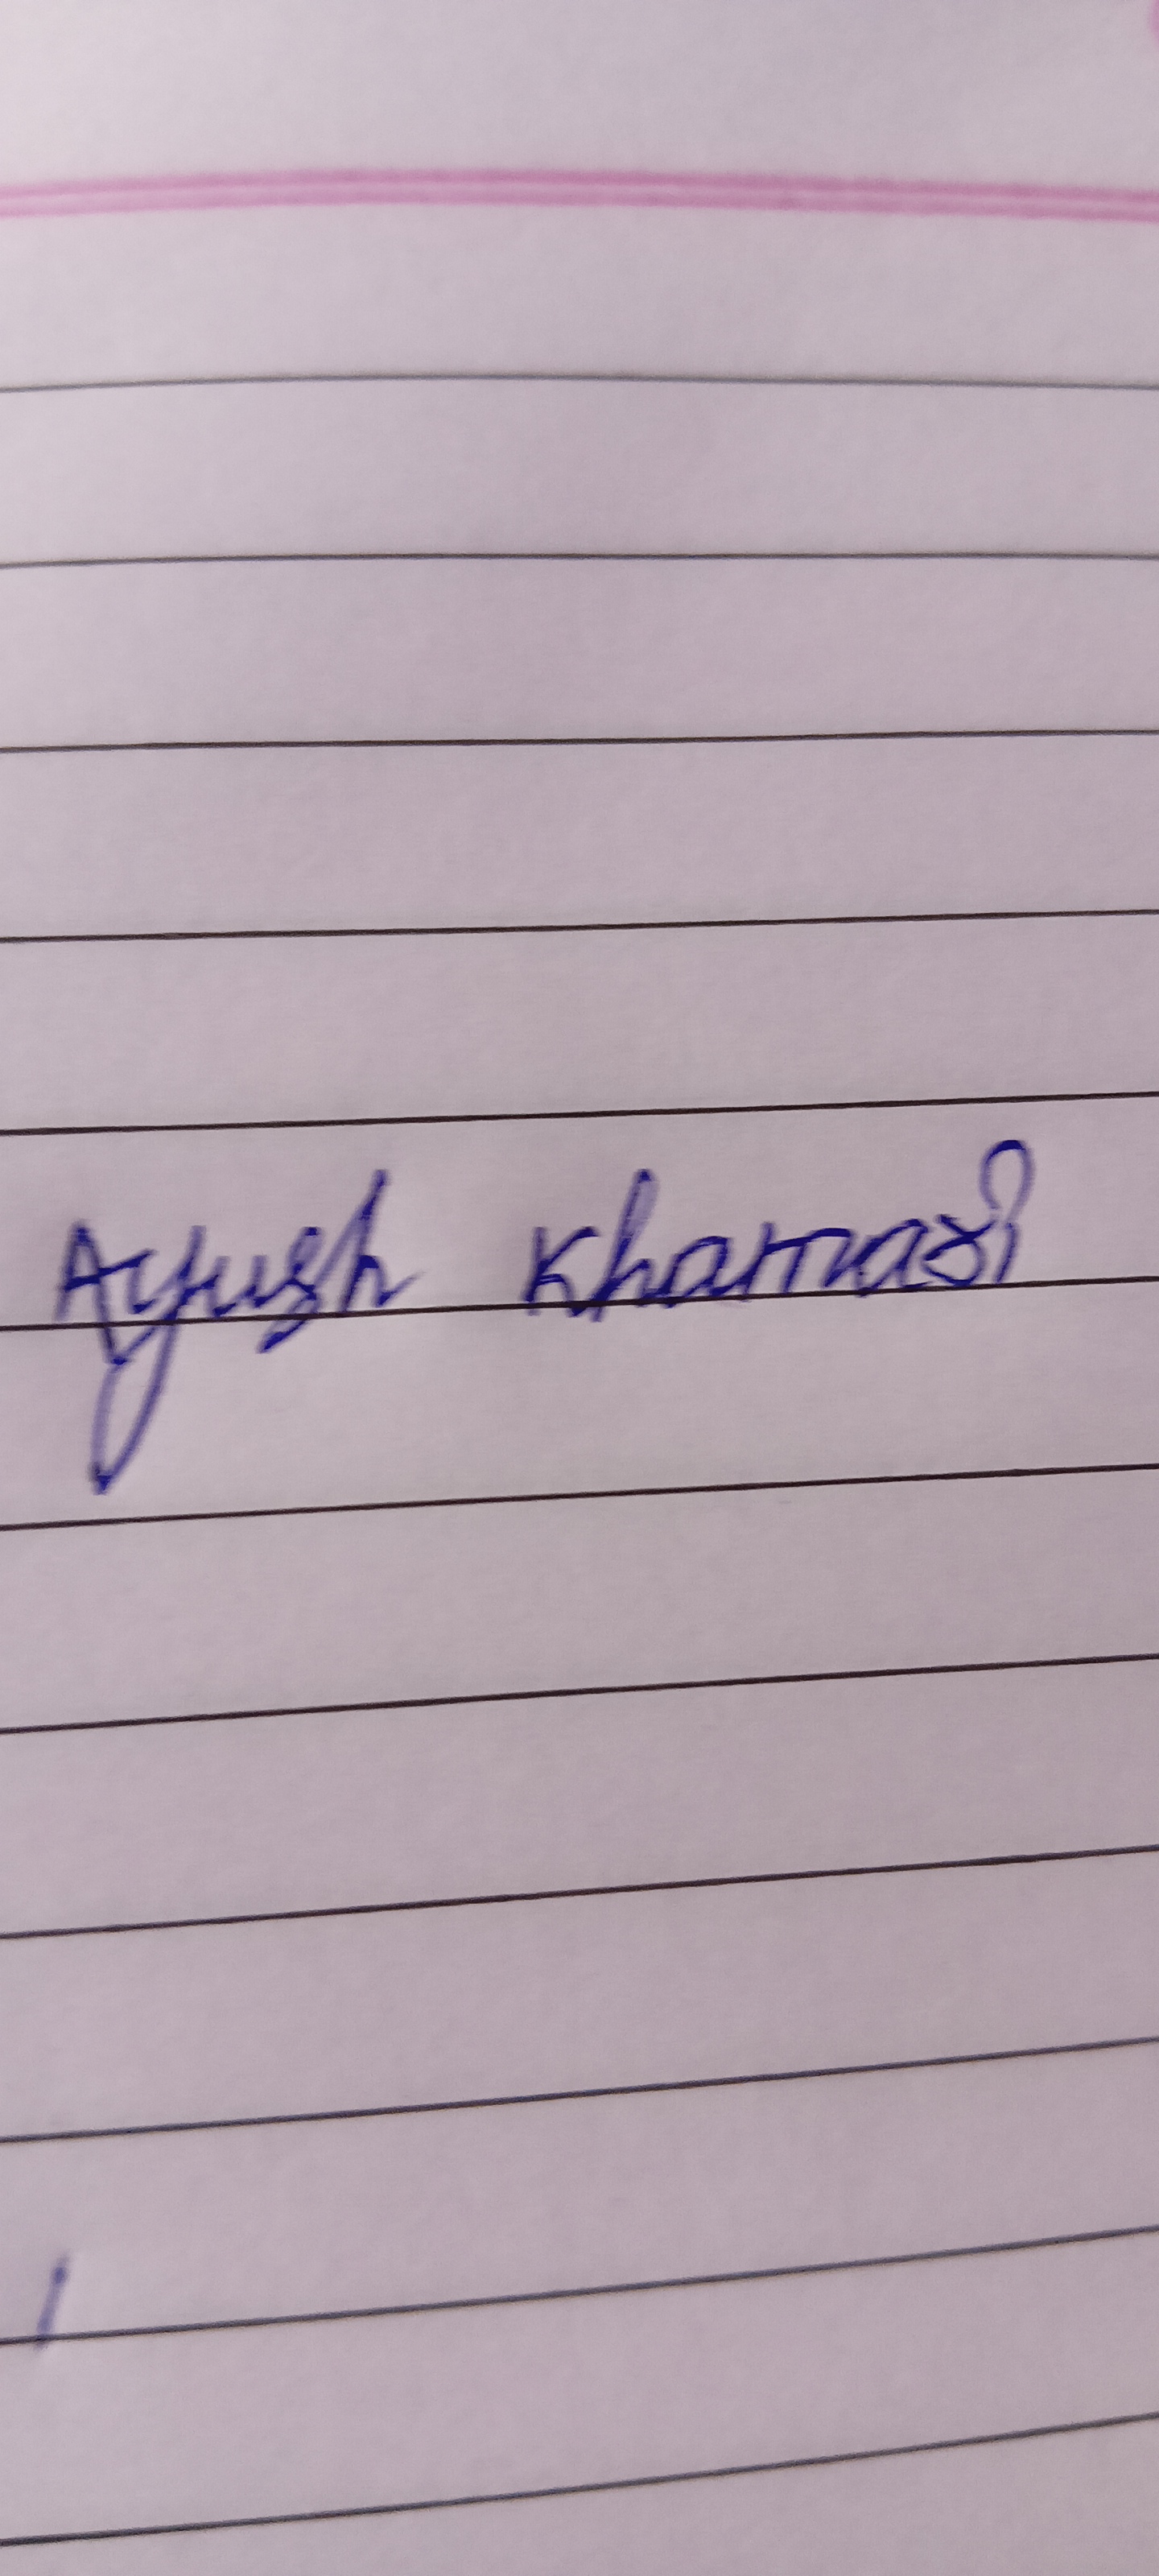 Ayush Khamari